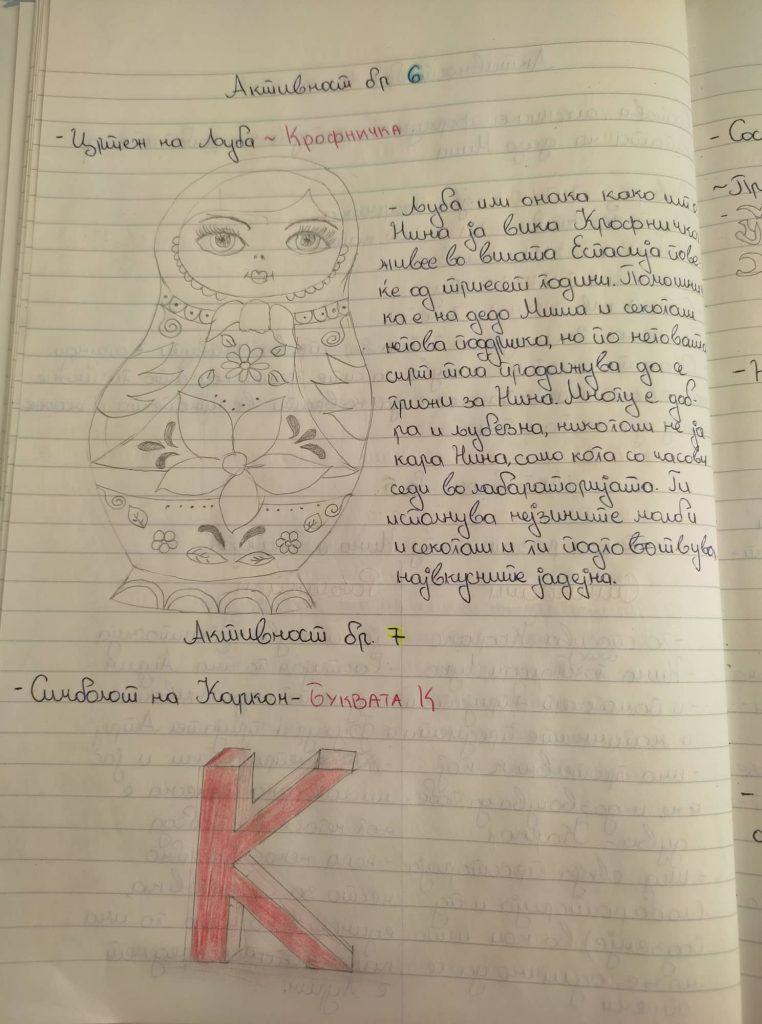 Активност бр 6
- Цртеж на Љуба ~ Крофничка
- Љуба или онака како што
Нина ја вика Крофничка
живее во вилата Естасија пове
ќе од триесет години. Помошни
ка е на дедо Миша и секогаш
негова подршка, но по неговата
смрт таа продолжува да се
грижи за Нина. Многу е доб-
ра и љубезна, никогаш не ја
кара Нина, само кога со часови
седи во лабараторијата. Ги
исполнува нејзините молби
и секогаш и ги подготвува
највкусните јадејна.
Активност бр. 7
- Симболот на Каркон - БУКВАТА К
К
- Сос
~ Пр
- Н